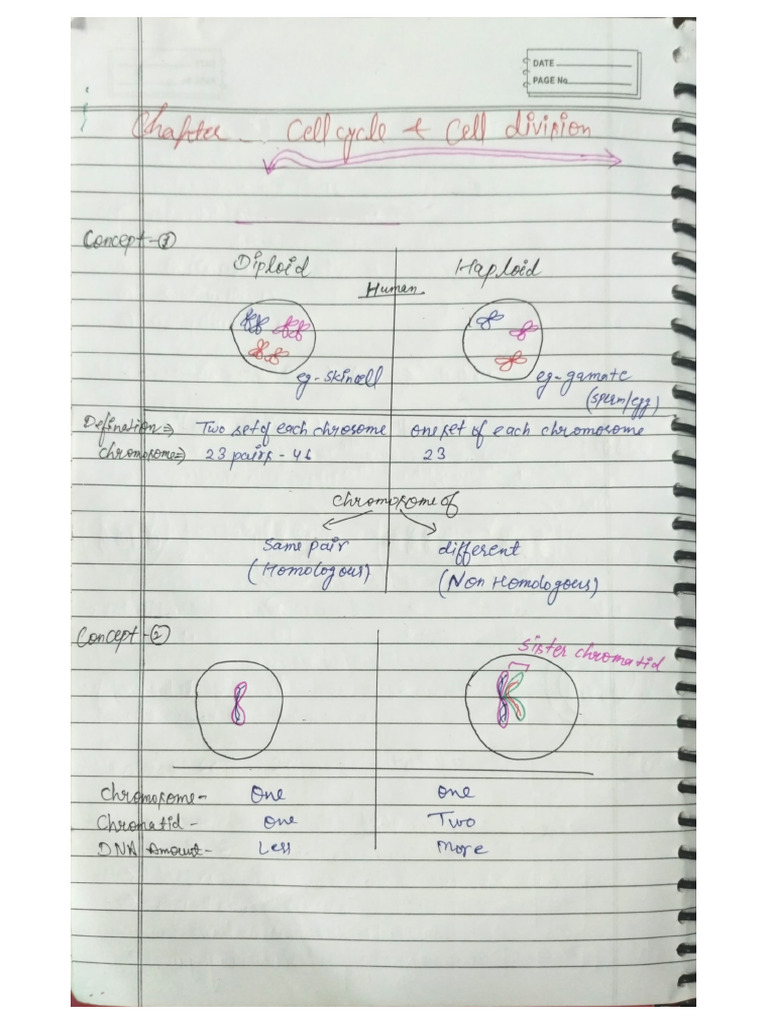 DATE
PAGE No.
Chapter - Cell cycle & Cell division
Concept-①
Diploid Haploid
Human
eg-skincell eg-gamate
(sperm/egg)
Defination⇒ Two set of each chrosome one set of each chromosome
Chromosome⇒ 23 pairs - 46 23
Chromosome of
Same pair different
(Homologous) (Non Homologous)
Concept-②
Sister chromatid
Chromosome- One One
Chromatid- One Two
DNA Amount- Less More